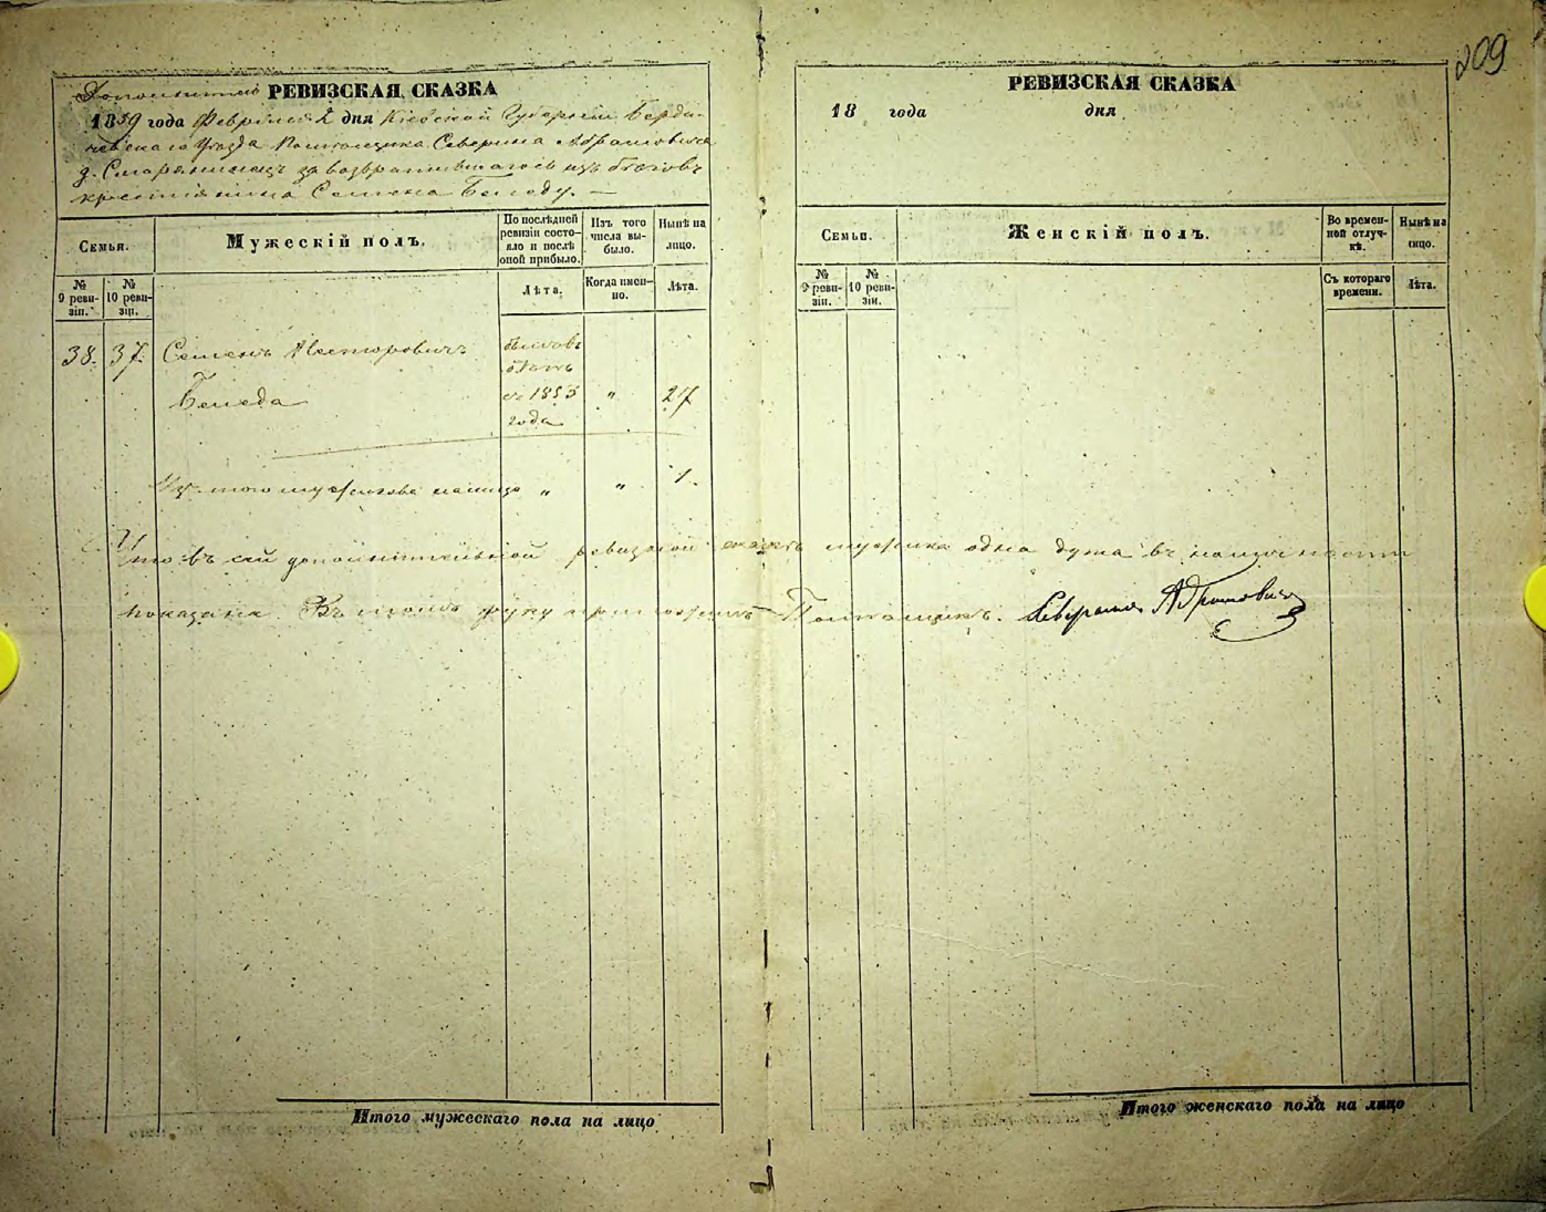 209
РЕВИЗСКАЯ СКАЗКА
1859 года Февраля 2 дня Кіевской Губерніи Берди-
чевскаго Уѣзда Помѣщика Северина Абрамовича
д. за возвратившагося изъ бѣговъ
крестьянина Семена Беледу. —
Семьи.
Мужескій полъ.
По послѣдней ревизіи состо-
яло и послѣ оной прибыло.
Изъ того числа вы-
было.
Нынѣ на лицо.
№ 9 реви-
зіи.
№ 10 реви-
зіи.
Лѣта.
Когда имен-
но.
Лѣта.
38. 37. Семенъ Несторовичъ
Беледа
бѣговъ
съ 1853 " 27
года
мужескаго налицо " " 1.
Что въ сей дополнительной ревизской сказкѣ мужска одна душа въ наличности
показана. Въ томъ руку приложилъ — Помѣщикъ. Северинъ Абрамовичъ
Итого мужескаго пола на лицо
РЕВИЗСКАЯ СКАЗКА
18 года дня
Семьи.
Женскій полъ.
Во времен-
ной отлуч-
кѣ.
Нынѣ на лицо.
№ 9 реви-
зіи.
№ 10 реви-
зіи.
Съ котораго времени.
Лѣта.
Итого женскаго пола на лицо